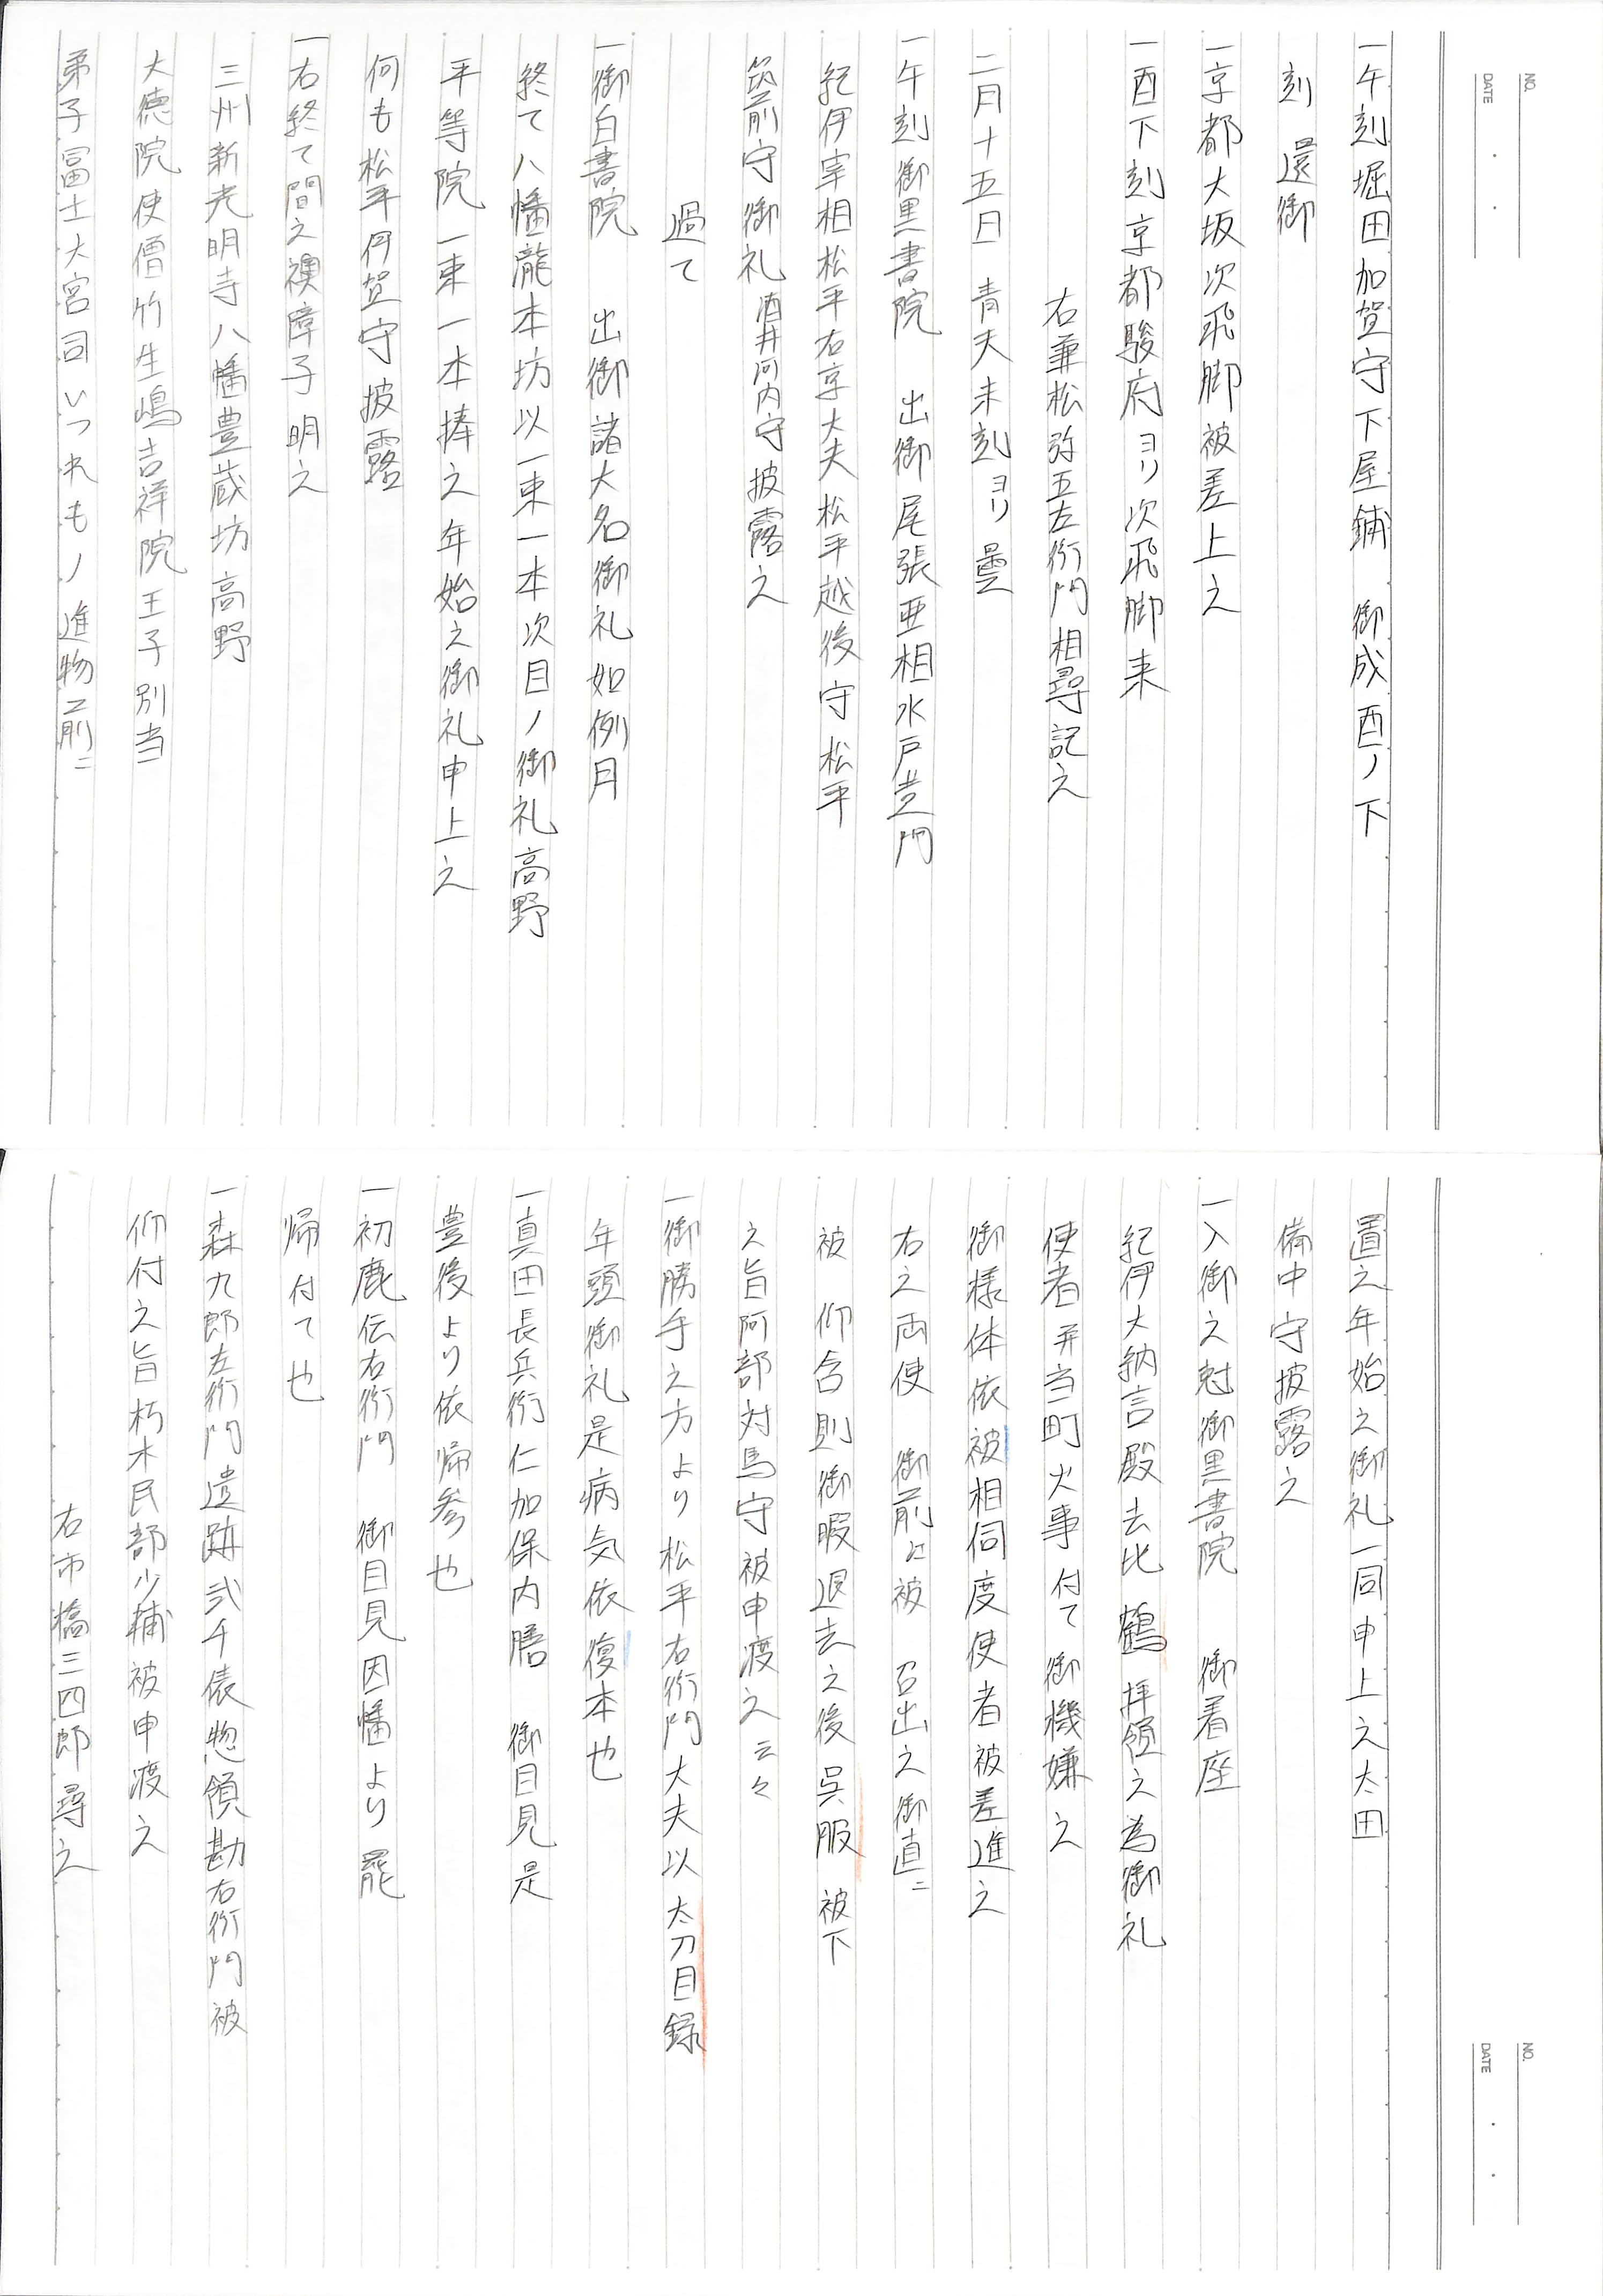 NO.
DATE
一午刻堀田加賀守下屋鋪 御成酉ノ下
刻 還御
一京都大坂次飛脚被差上之
一酉下刻京都駿府ヨリ次飛脚来
右兼松弥五左衛門相尋記之
二月十五日 青天未刻ヨリ曇
一午刻御黒書院 出御尾張亜相水戸黄門
紀伊宰相松平右京大夫松平越後守松平
筑前守御礼酒井河内守披露之
過て
一御白書院 出御諸大名御礼如例月
終て八幡瀧本坊以一束一本次目ノ御礼高野
平等院一束一本捧之年始之御礼申上之
何も松平伊賀守披露
一右終て間之襖障子明之
三州新光明寺八幡豊蔵坊高野
大徳院使僧竹生嶋吉祥院王子別当
弟子冨士大宮司いつれもノ進物前ニ
NO.
DATE
置之年始之御礼一同申上之太田
備中守披露之
一入御之尅御黒書院 御着座
紀伊大納言殿去比鶴拝領之為御礼
使者并当町火事付て御機嫌之
御様体依被相伺度使者被差進之
右之両使 御前に被 召出之御直ニ
被 仰含則御暇退去之後呉服 被下
之旨阿部対馬守被申渡之云々
一御勝手之方より松平右衛門大夫以太刀目録
年頭御礼是病気依復本也
一真田長兵衛仁加保内膳 御目見是
豊後より依帰参也
一初鹿伝右衛門 御目見因幡より罷
帰付て也
一森九郎左衛門遺跡弐千俵惣領勘右衛門被
仰付之旨朽木民部少輔被申渡之
右市橋三四郎尋之